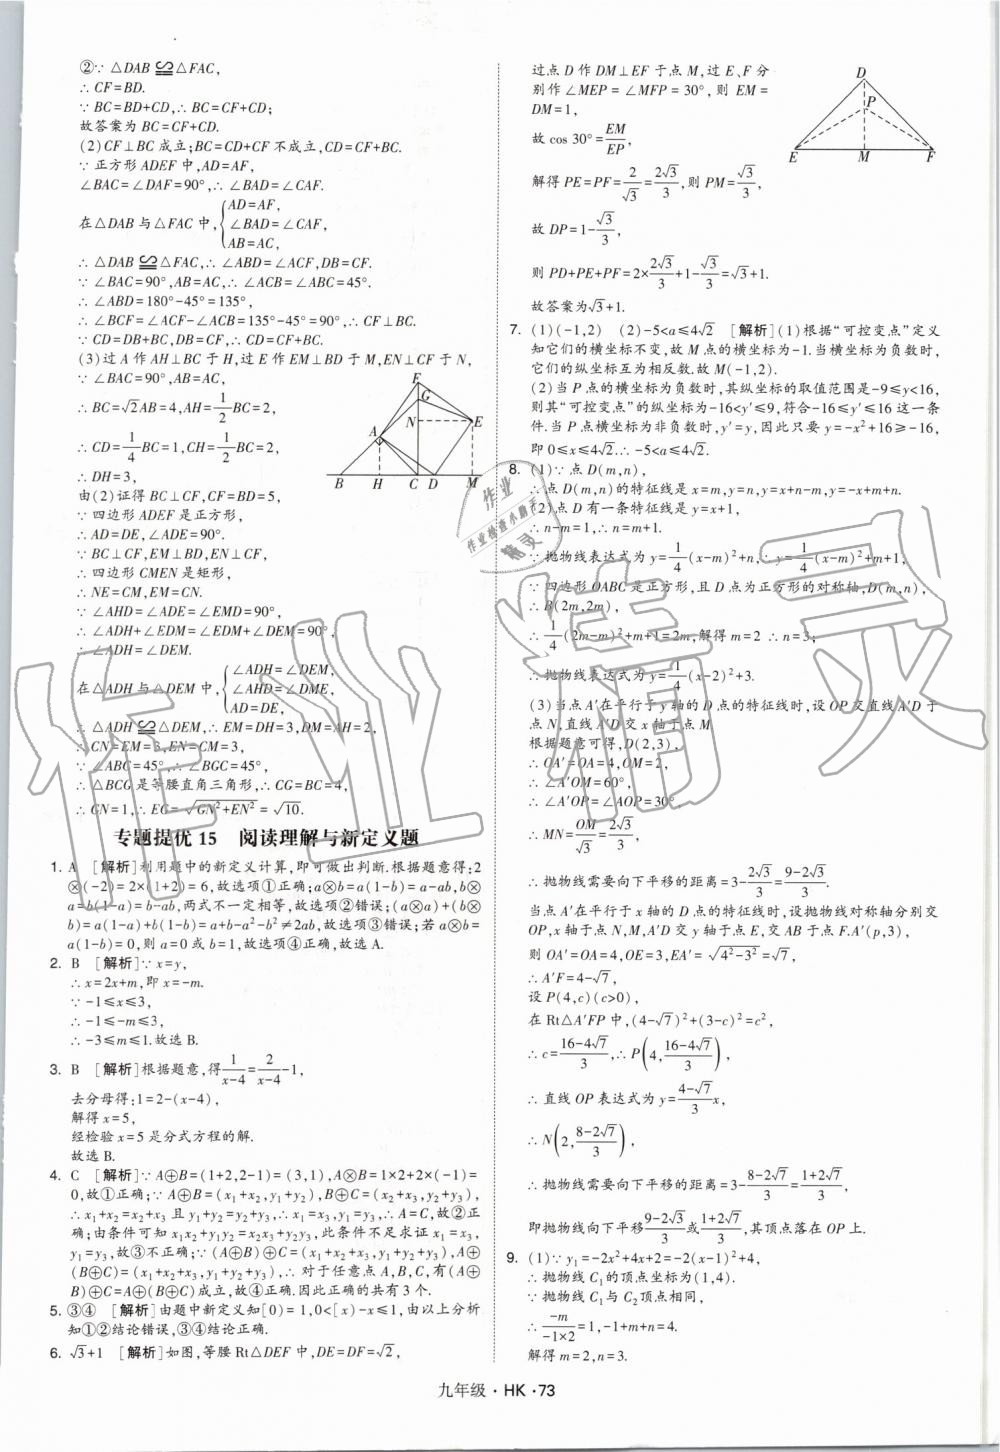 ②∵ △DAB≌△FAC,
∴ CF=BD.
∵ BC=BD+CD,∴ BC=CF+CD;
故答案为 BC=CF+CD.
(2) CF⊥BC 成立;BC=CD+CF 不成立,CD=CF+BC.
∵ 正方形 ADEF 中,AD=AF,
∠BAC=∠DAF=90°,∴ ∠BAD=∠CAF.
在△DAB 与△FAC 中,{AD=AF,
∠BAD=∠CAF,
AB=AC,
∴ △DAB≌△FAC,∴ ∠ABD=∠ACF,DB=CF.
∵ ∠BAC=90°,AB=AC,∴ ∠ACB=∠ABC=45°.
∴ ∠ABD=180°-45°=135°,
∴ ∠BCF=∠ACF-∠ACB=135°-45°=90°,∴ CF⊥BC.
∵ CD=DB+BC,DB=CF,∴ CD=CF+BC.
(3)过 A 作 AH⊥BC 于 H,过 E 作 EM⊥BD 于 M,EN⊥CF 于 N,
∵ ∠BAC=90°,AB=AC,
∴ BC=√2AB=4,AH=1/2BC=2,
∴ CD=1/4BC=1,CH=1/2BC=2,
∴ DH=3,
由(2)证得 BC⊥CF,CF=BD=5,
∵ 四边形 ADEF 是正方形,
∴ AD=DE,∠ADE=90°.
∵ BC⊥CF,EM⊥BD,EN⊥CF,
∴ 四边形 CMEN 是矩形,
∴ NE=CM,EM=CN.
∵ ∠AHD=∠ADE=∠EMD=90°,
∴ ∠ADH+∠EDM=∠EDM+∠DEM=90°,
∴ ∠ADH=∠DEM.
在△ADH 与△DEM 中,{∠ADH=∠DEM,
∠AHD=∠DME,
AD=DE,
∴ △ADH≌△DEM,∴ EM=DH=3,DM=AH=2,
∴ CN=EM=3,EN=CM=3,
∵ ∠ABC=45°,∴ ∠BGC=45°,
∴ △BCG 是等腰直角三角形,∴ CG=BC=4,
∴ GN=1,∴ EG=√(GN²+EN²)=√10.
专题提优 15 阅读理解与新定义题
1. A [解析]利用题中的新定义计算,即可做出判断.根据题意得:2
⊗(-2)=2×(1+2)=6,故选项①正确;a⊗b=a(1-b)=a-ab,b⊗
a=b(1-a)=b-ab,两式不一定相等,故选项②错误;(a⊗a)+(b⊗
b)=a(1-a)+b(1-b)=a+b-a²-b²≠2ab,故选项③错误;若 a⊗b=
a(1-b)=0,则 a=0 或 b=1,故选项④正确,故选 A.
2. B [解析]∵ x=y,
∴ x=2x+m,即 x=-m.
∵ -1≤x≤3,
∴ -1≤-m≤3,
∴ -3≤m≤1.故选 B.
3. B [解析]根据题意,得1/(x-4)=2/(x-4)-1,
去分母得:1=2-(x-4),
解得 x=5,
经检验 x=5 是分式方程的解.
故选 B.
4. C [解析]∵ A⊕B=(1+2,2-1)=(3,1),A⊗B=1×2+2×(-1)=
0,故①正确;∵ A⊕B=(x₁+x₂,y₁+y₂),B⊕C=(x₂+x₃,y₂+y₃),
∴ x₁+x₂=x₂+x₃ 且 y₁+y₂=y₂+y₃,∴ x₁=x₃,y₁=y₃,∴ A=C,故②正
确;由条件可知 x₁x₂+y₁y₂=x₂x₃+y₂y₃,此条件不足求证 x₁=x₃,
y₁=y₃,故③不正确;∵ (A⊕B)⊕C=(x₁+x₂+x₃,y₁+y₂+y₃),A⊕
(B⊕C)=(x₁+x₂+x₃,y₁+y₂+y₃),∴ 对于任意点 A,B,C,有(A⊕
B)⊕C=A⊕(B⊕C)成立,故④正确.因此正确的共有 3 个.
5. ③④ [解析]由题中新定义知[0)=1,0<[x)-x≤1,由以上分析
知①②结论错误,③④结论正确.
6. √3+1 [解析]如图,等腰 Rt△DEF 中,DE=DF=√2,
过点 D 作 DM⊥EF 于点 M,过 E、F 分
别作 ∠MEP=∠MFP=30°,则 EM=
DM=1,
故 cos 30°=EM/EP,
解得 PE=PF=2/√3=2√3/3,则 PM=√3/3,
故 DP=1-√3/3,
则 PD+PE+PF=2×2√3/3+1-√3/3=√3+1.
故答案为√3+1.
7. (1)(-1,2) (2)-5<a≤4√2 [解析](1)根据“可控变点”定义
知它们的横坐标不变,故 M 点的横坐标为-1.当横坐标为负数时,
它们的纵坐标互为相反数.故 M(-1,2).
(2)当 P 点的横坐标为负数时,其纵坐标的取值范围是-9≤y<16,
则其“可控变点”的纵坐标为-16<y′≤9,符合-16≤y′≤16 这一条
件.当 P 点的横坐标为非负数时,y′=y,因此只要 y=-x²+16≥-16,
即 0≤x≤4√2.故-5<a≤4√2.
8. (1)∵ 点 D(m,n),
∴ 点 D(m,n)的特征线是 x=m,y=n,y=x+n-m,y=-x+m+n.
(2)点 D 有一条特征线是 y=x+1,
∴ n-m=1,∴ n=m+1.
∵ 抛物线表达式为 y=1/4(x-m)²+n,∴ y=1/4(x-m)²+m+1,
∵ 四边形 OABC 是正方形,且 D 点为正方形的对称轴,D(m,n),
∴ B(2m,2m),
∴ 1/4(2m-m)²+m+1=2m,解得 m=2 ∴ n=3;
∴ 抛物线表达式为 y=1/4(x-2)²+3.
(3)当点 A′在平行于 y 轴的 D 点的特征线时,设 OP 交直线 A′D 于
点 N,直线 A′D 交 x 轴于点 M
根据题意可得,D(2,3),
∴ OA′=OA=4,OM=2,
∴ ∠A′OM=60°,
∴ ∠A′OP=∠AOP=30°,
∴ MN=OM/√3=2√3/3,
∴ 抛物线需要向下平移的距离=3-2√3/3=(9-2√3)/3.
当点 A′在平行于 x 轴的 D 点的特征线时,设抛物线对称轴分别交
OP,x 轴于点 N,M,A′D 交 y 轴于点 E,交 AB 于点 F.A′(p,3),
则 OA′=OA=4,OE=3,EA′=√(4²-3²)=√7,
∴ A′F=4-√7,
设 P(4,c)(c>0),
在 Rt△A′FP 中,(4-√7)²+(3-c)²=c²,
∴ c=(16-4√7)/3,∴ P(4,(16-4√7)/3),
∴ 直线 OP 表达式为 y=(4-√7)/3x,
∴ N(2,(8-2√7)/3),
∴ 抛物线需要向下平移的距离=3-(8-2√7)/3=(1+2√7)/3,
即抛物线向下平移(9-2√3)/3或(1+2√7)/3,其顶点落在 OP 上.
9. (1)∵ y₁=-2x²+4x+2=-2(x-1)²+4,
∴ 抛物线 C₁的顶点坐标为(1,4).
∵ 抛物线 C₁与 C₂顶点相同,
∴ -m/(-1×2)=1,-1+m+n=4.
解得 m=2,n=3.
九年级·HK·73